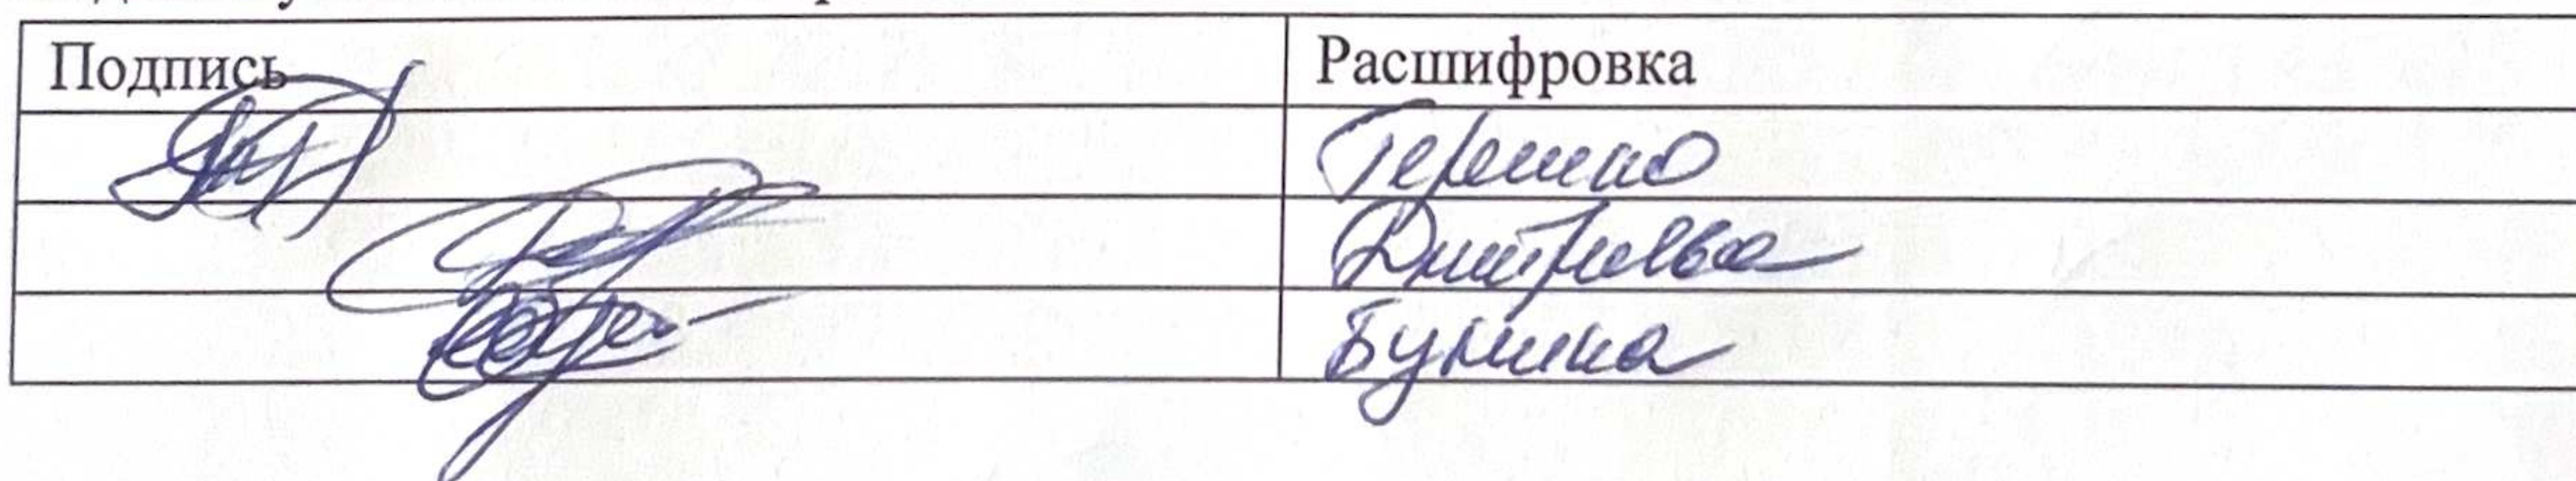 Подпись Расшифровка
Терешко
Дмитриева
Бунина